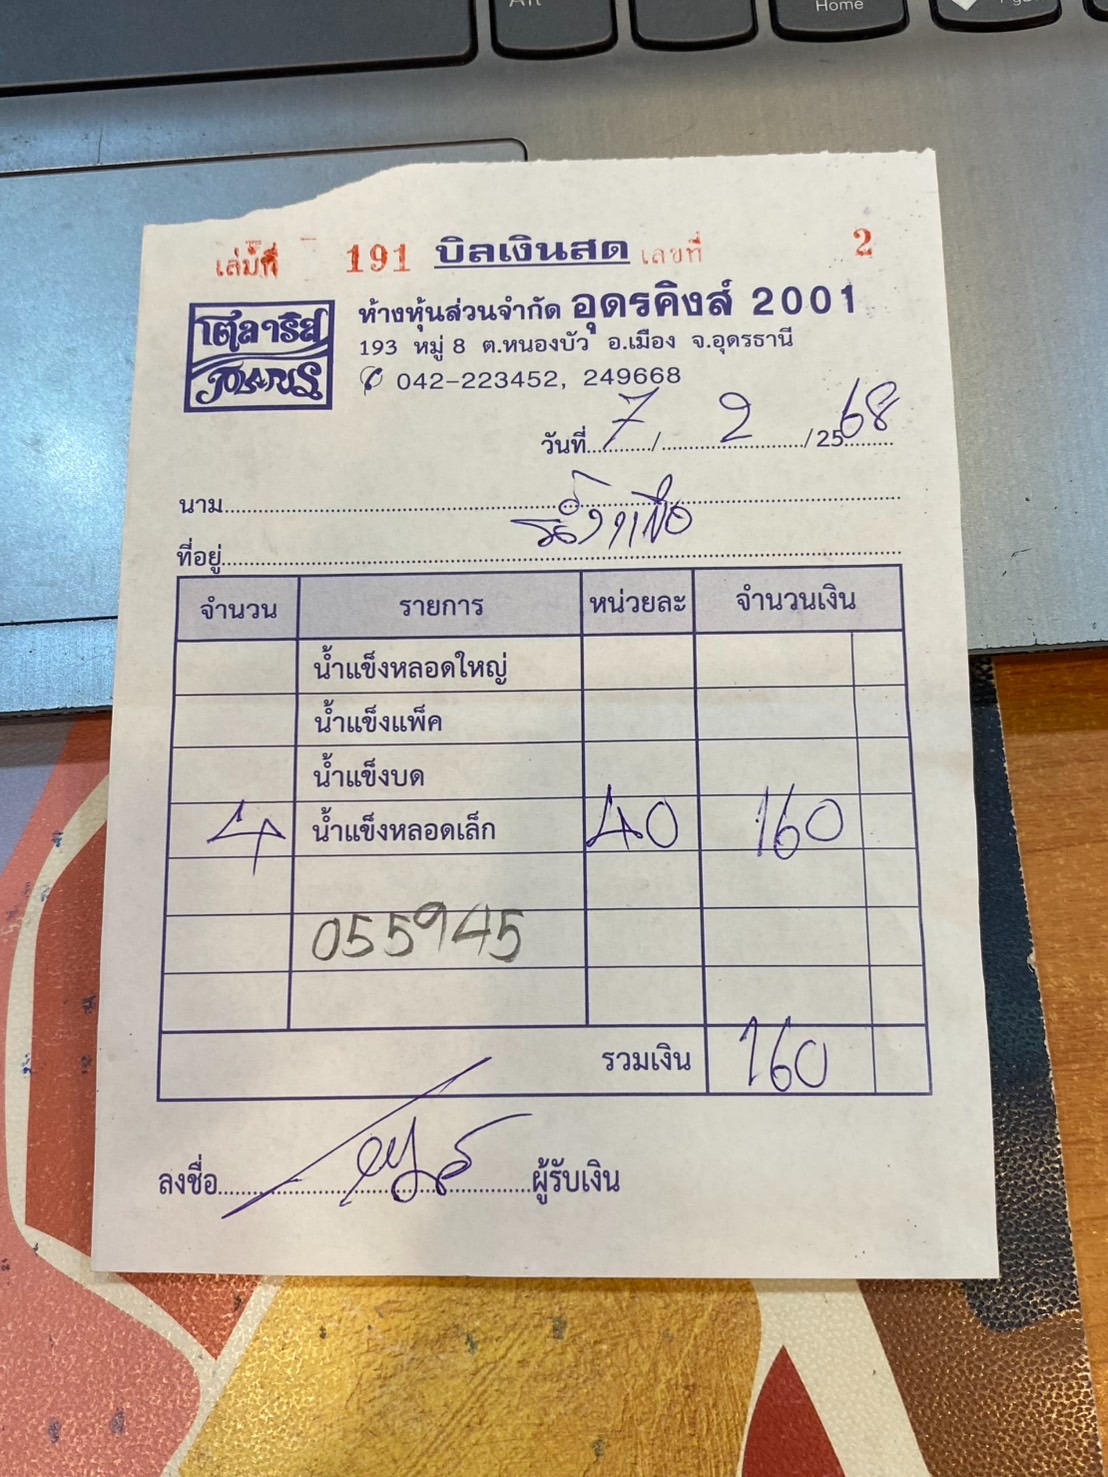 Alt
Home
PgUp
เล่มที่ 191 บิลเงินสด เลขที่ 2
โตลาริส
POLARIS
ห้างหุ้นส่วนจำกัด อุดรคิงส์ 2001
193 หมู่ 8 ต.หนองบัว อ.เมือง จ.อุดรธานี
042-223452, 249668
วันที่ 7 / 2 / 2568
นาม
ที่อยู่
จำนวน รายการ หน่วยละ จำนวนเงิน
น้ำแข็งหลอดใหญ่
น้ำแข็งแพ็ค
น้ำแข็งบด
4 น้ำแข็งหลอดเล็ก 40 160
055945
รวมเงิน 160
ลงชื่อ ผู้รับเงิน